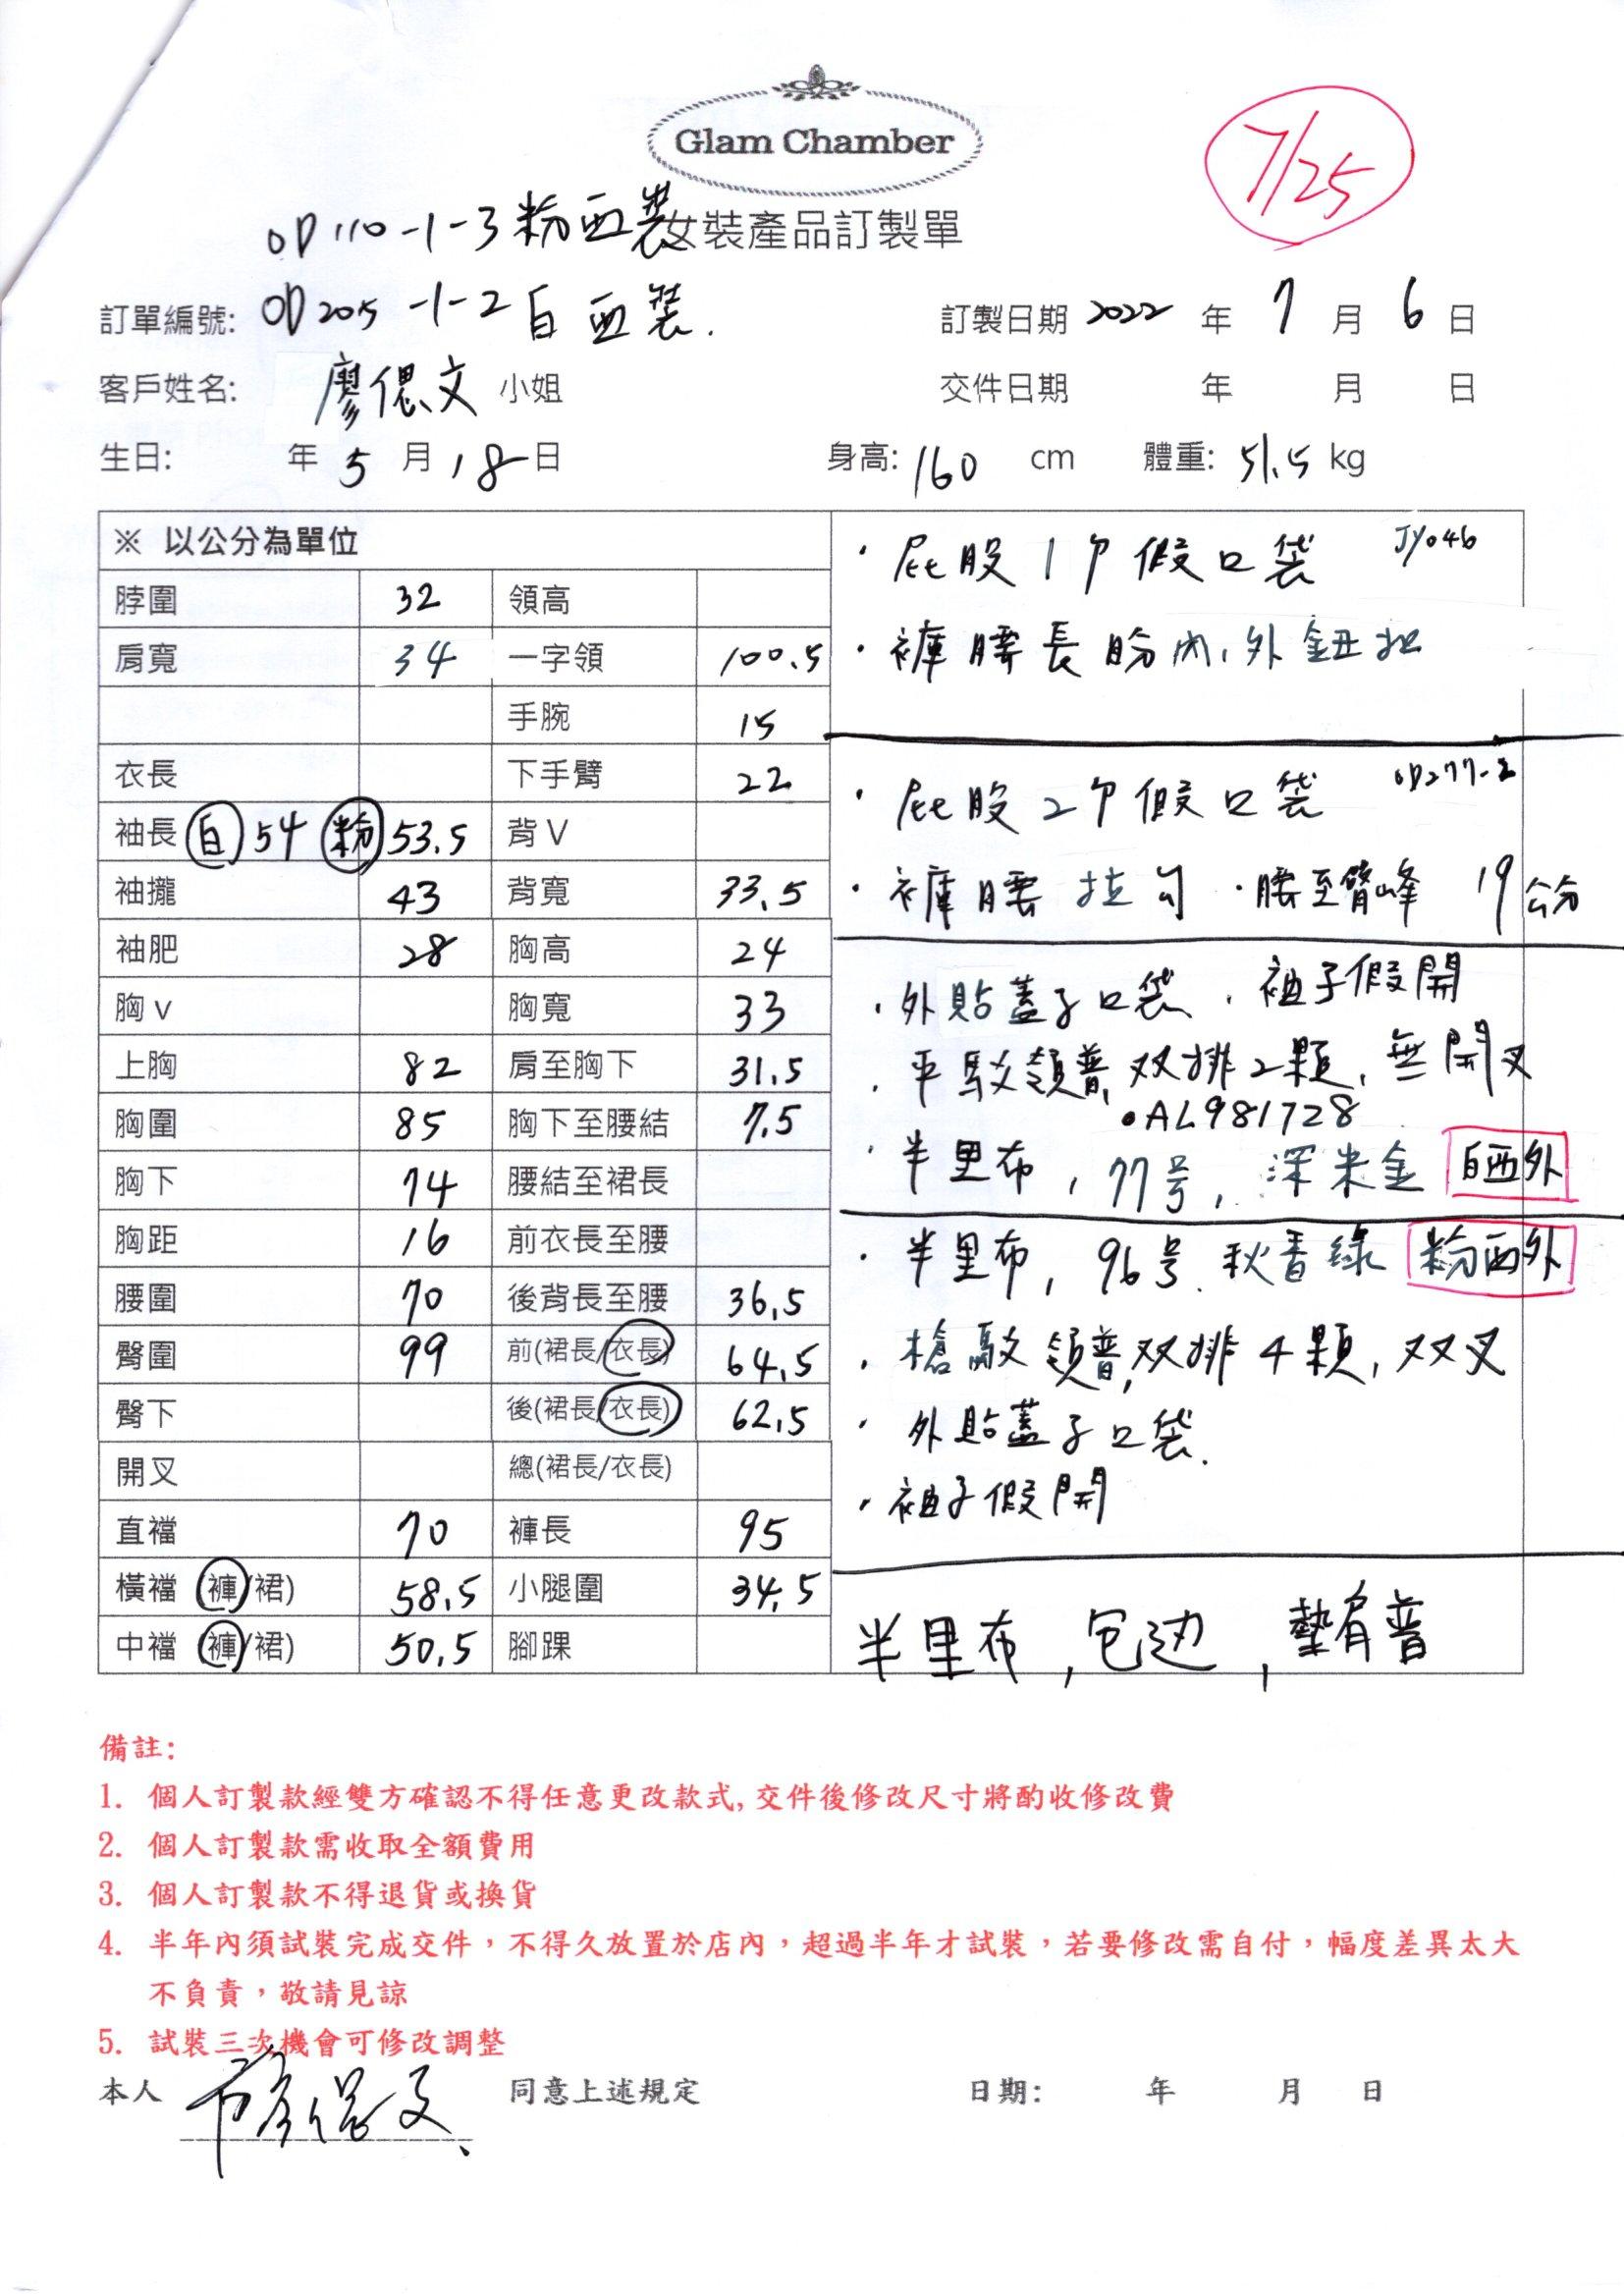 Glam Chamber
7/25
OD110-1-3 粉西裝
女裝產品訂製單
訂單編號: OD205-1-2 白西裝. 訂製日期 2022 年 7 月 6 日
客戶姓名: 廖偲文 小姐 交件日期 年 月 日
生日: 年 5 月 18 日 身高: 160 cm 體重: 51.5 kg
※ 以公分為單位
脖圍 32 領高
肩寬 34 一字領 100.5
手腕 15
衣長 下手臂 22
袖長 白 54 粉 53.5 背V
袖攏 43 背寬 33.5
袖肥 28 胸高 24
胸v 胸寬 33
上胸 82 肩至胸下 31.5
胸圍 85 胸下至腰結 7.5
胸下 74 腰結至裙長
胸距 16 前衣長至腰
腰圍 70 後背長至腰 36.5
臀圍 99 前(裙長/衣長) 64.5
臀下 後(裙長/衣長) 62.5
開叉 總(裙長/衣長)
直襠 70 褲長 95
橫襠 (褲/裙) 58.5 小腿圍 34.5
中襠 (褲/裙) 50.5 腳踝
· 屁股1个假口袋 JY046
· 褲腰長盼內,外鈕扣
· 屁股2个假口袋 OD277-2
· 褲腰拉勾 · 腰至臀峰 19公分
· 外貼蓋子口袋、袖子假開
· 平駁領普,双排2顆,無開叉
• AL981728
· 半里布, 77号, 深米金 白西外
· 半里布, 96号. 秋香綠 粉西外
· 槍駁領普,双排4顆,双叉
· 外貼蓋子口袋.
· 袖子假開
半里布,包边,墊肩普
備註:
1. 個人訂製款經雙方確認不得任意更改款式,交件後修改尺寸將酌收修改費
2. 個人訂製款需收取全額費用
3. 個人訂製款不得退貨或換貨
4. 半年內須試裝完成交件，不得久放置於店內，超過半年才試裝，若要修改需自付，幅度差異太大
不負責，敬請見諒
5. 試裝三次機會可修改調整
本人 廖偲文 同意上述規定 日期: 年 月 日